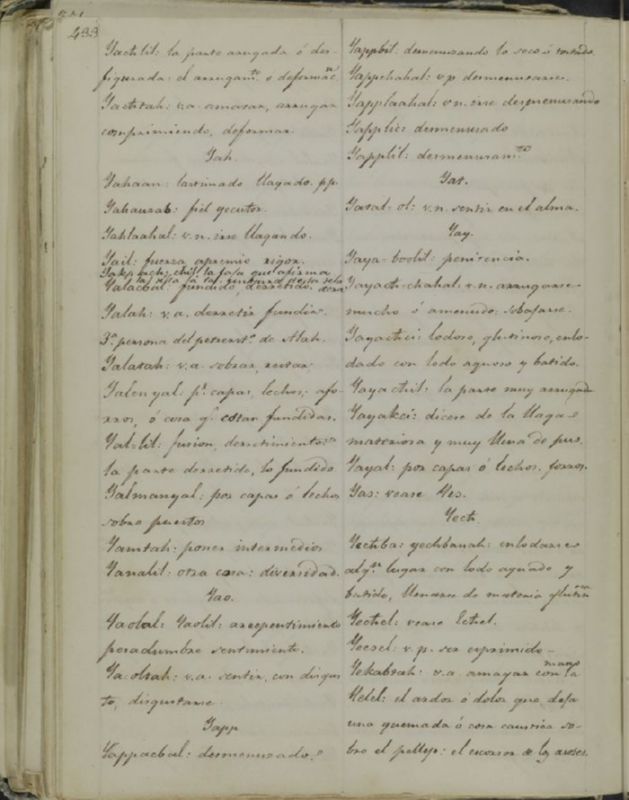 433
Yachlit: la parte arrugada ó des-
figurada: el arrugamto. o deformacn.
Yachtah: v.a. amasar, arrugar
comprimiendo, deformar.
Yah.
Yahaan: lastimado llagado. pp.
Yahauxab: fiel
Yahlaahal: v.n. irse llagando.
Yail: fuerza apremio rigor.
la fosa que
Yalacbal: fundido, derretido.
Yalah: v.a. derretir fundir.
3a. persona del de Alah.
Yalatah: v.a. sobrar, restar
Yalenyal: pr. capas, lechos, afo-
rros, ó cosa qe. estan fundidas.
Yal-lil: fusion, derretimiento:
la parte derretida, lo fundido
Yalmanyal: por capas ó lechos
sobre puestos
Yamtah: poner intermedios
Yanalil: otra cosa: diversidad.
Yao.
Yaolal: Yaolil: arrepentimiento
pesadumbre sentimiento.
Yaoltah: v.a. sentir, con disgus
to, disgustarse
Yapp
Yappacbal: desmenuzado.
Yappbil: desmenuzando lo seco ó tostado
Yappchahal: v.p. desmenuzarse.
Yapplaahal: v.n. irse desmenuzando
Yapplic: desmenuzado
Yapplil: desmenuzamto.
Yat.
Yatal-ol: v.n. sentir en el alma.
Yay.
Yaya-boolil: penitencia.
Yayach-chahal: v.n. arrugarse
mucho ó amenudo: sobajarse.
Yayachci: lodoso, glutinoso, enlo-
dado con lodo aguoso y batido.
Yayachil: la parte muy arrugada
Yayakci: dicese de la llaga
materiosa y muy llena de pus.
Yayal: por capas ó lechos, forros.
Yas: vease Yes.
Yech
Yechba: yechbanah: enlodarse
algn. lugar con lodo aguado y
batido, llenarse de materia
Yechel: vease Echel.
Yeesel: v.p. ser exprimido
Yekabtah: v.a. amagar con la mano
Yelel: el ardor ó dolor que deja
una quemada ó cosa caustica so-
bre el pellejo: el escozor de los